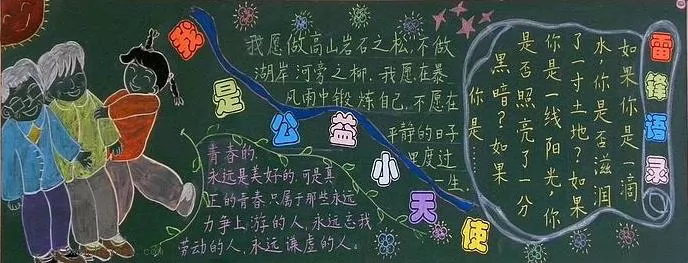 我是公益小天使
我愿做高山岩石之松,不做
湖岸河旁之柳.我愿在暴
风雨中锻炼自己,不愿在
平静的日子
里度过
一生.
青春的,
永远是美好的,可是真
正的青春,只属于那些永远
力争上游的人,永远忘我
劳动的人,永远谦虚的人。
雷锋语录
如果你是一滴
水,你是否滋润
了一寸土地?如果
你是一线阳光,你
是否照亮了一分
黑暗?如果
你是…